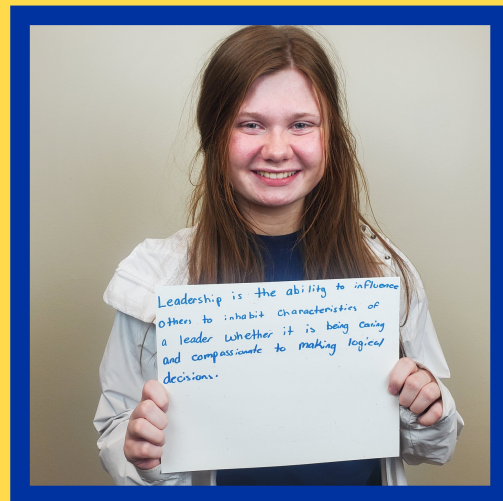 Leadership is the ability to influence
others to inhabit characteristics of
a leader whether it is being caring
and compassionate to making logical
decisions.